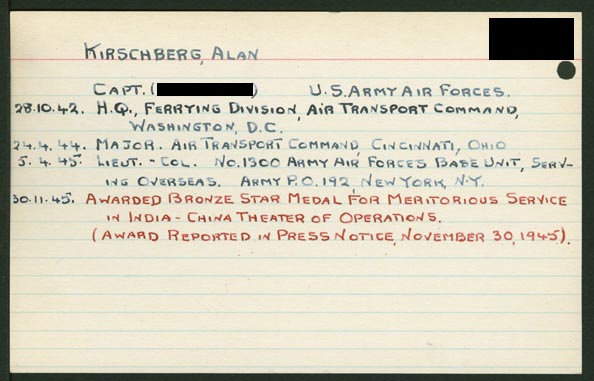 KIRSCHBERG, ALAN
CAPT. ( ) U.S. ARMY AIR FORCES.
28.10.42. H.Q., FERRYING DIVISION, AIR TRANSPORT COMMAND,
WASHINGTON, D.C.
24.4.44. MAJOR. AIR TRANSPORT COMMAND, CINCINNATI, OHIO
5.4.45. LIEUT.-COL. NO.1300 ARMY AIR FORCES BASE UNIT, SERV-
ING OVERSEAS. ARMY P.O. 192, NEW YORK, N.Y.
30.11.45. AWARDED BRONZE STAR MEDAL FOR MERITORIOUS SERVICE
IN INDIA-CHINA THEATER OF OPERATIONS.
(AWARD REPORTED IN PRESS NOTICE, NOVEMBER 30, 1945).